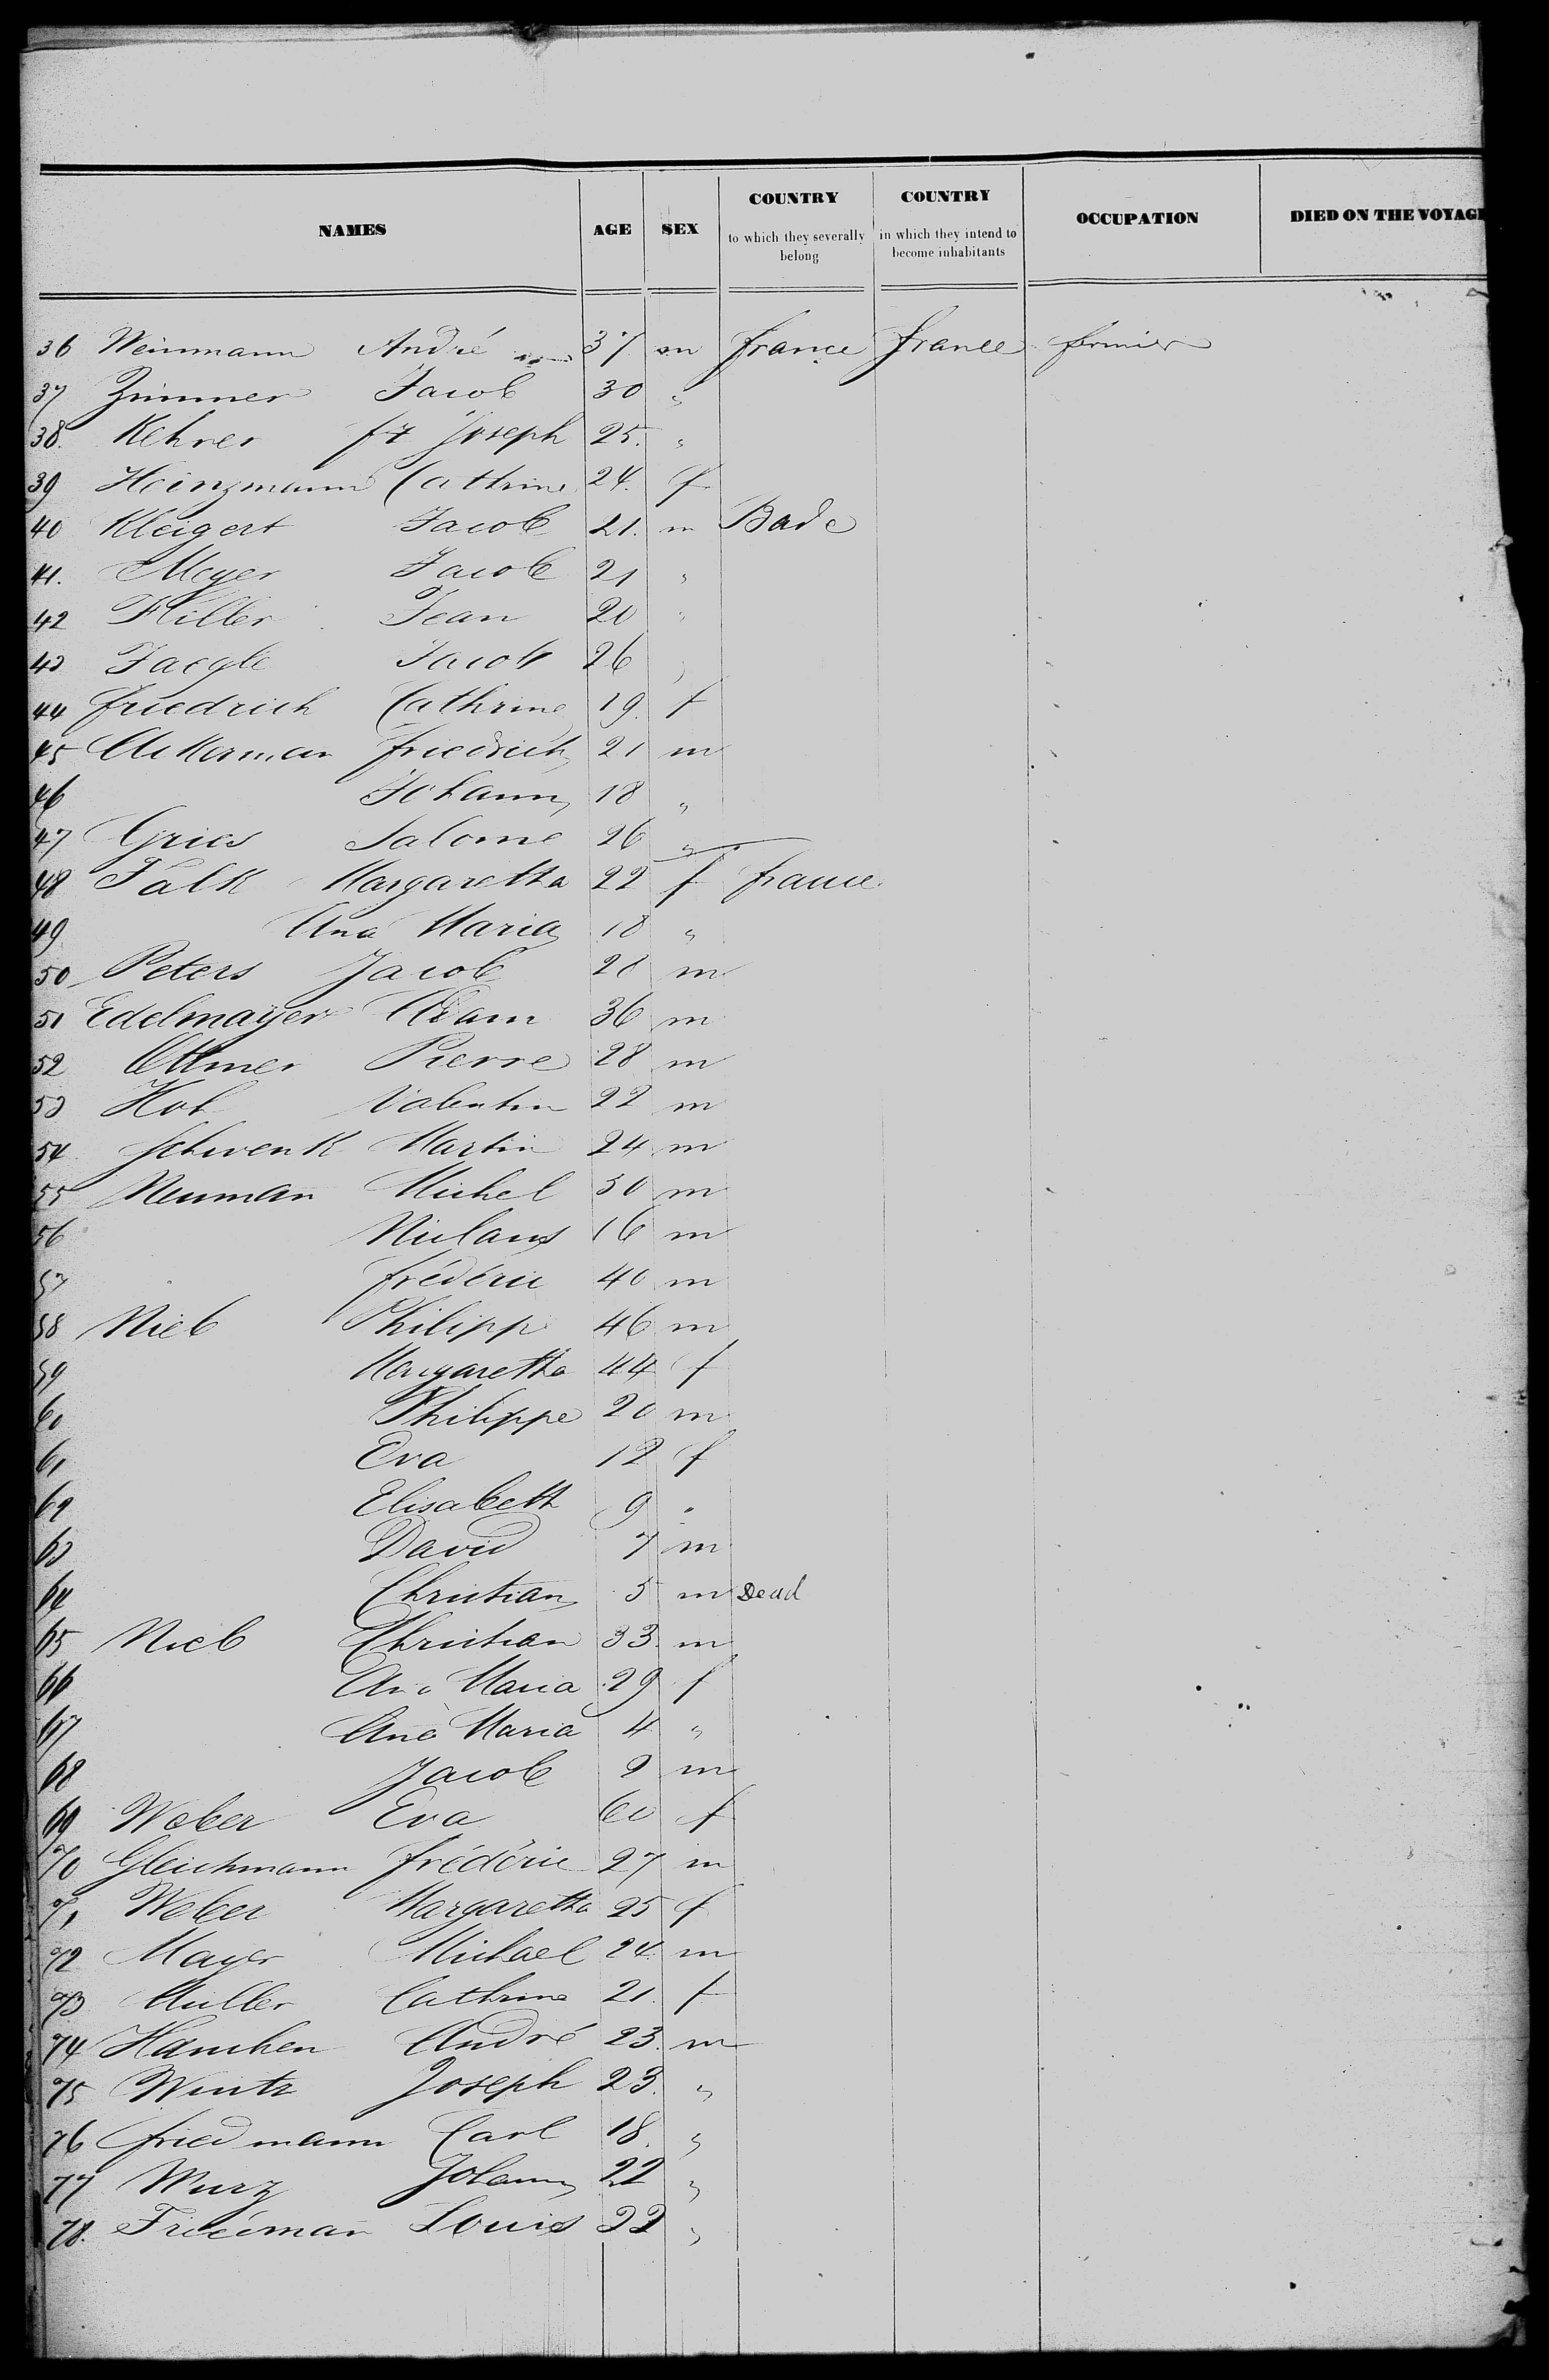 NAMES AGE SEX COUNTRY to which they severally belong COUNTRY in which they intend to become inhabitants OCCUPATION DIED ON THE VOYAGE
36 Weinmann André 37 m france france fermier
37 Zimmer Jacob 30 "
38. Kehrer fx Joseph 25. "
39 Heinzmann Cathrine 24. f
40 Kleigert Jacob 21. m Bade
41. Meyer Jacob 21 "
42 Hiller Jean 20 "
43 Jaegle Jacob 26 "
44 friedrich Cathrine 19. f
45 Ackerman friedrich 21 m
46 Johann 18 "
47 Gries Salome 26 "
48 Falk Margaretha 22 f france
49 Ana Maria 18 "
50 Peters Jacob 20 m
51 Edelmayer Adam 36 m
52 Ottmer Pierre 28 m
53 Hof Valentin 22 m
54. Schwenk Martin 24 m
55 Neuman Michel 50 m
56 Niclaus 16 m
57 frédéric 40 m
58 Nieb Philipp 46 m
59 Margaretha 44 f
60 Philippe 20 m
61 Eva 12 f
62 Elisabeth 9 "
63 David 7 m
64 Christian 5 m Dead
65 Nieb Christian 33. m
66 Ana Maria 29 f
67 Ana Maria 4 "
68 Jacob 2 m
69 Weber Eva 60 f
70 Gleichmann frédéric 27 m
71 Weber Margaretha 25 f
72 Mayer Michael 24. m
73 Muller Cathrine 21. f
74 Hamchen André 23. m
75 Wintz Joseph 23. "
76 friedmann Carl 18. "
77 Wurz Johann 22 "
78. Friedman Louis 22 "